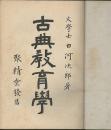 文學士 田河次郎著
古典教育學
聚精堂發售